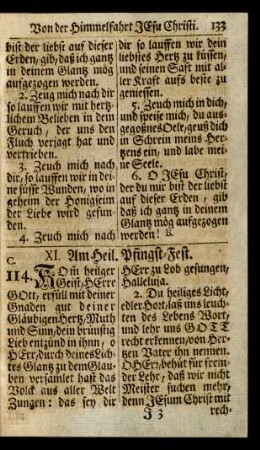 Von der Himmelfahrt JEsu Christi. 133
bist der liebst auf dieser
Erden, gib, daß ich gantz
in deinem Glantz mög
aufgezogen werden.
2. Zeug mich nach dir
so lauffen wir mit hertz-
lichem Belieben in dem
Geruch, der uns den
Fluch verjagt hat und
vertrieben.
3. Zeuch mich nach
dir, so lauffen wir in dei-
ne süsse Wunden, wo in
geheim der Honigseim
der Liebe wird gefun-
den.
4. Zeuch mich nach
dir so lauffen wir dein
liebstes Hertz zu küssen,
und seinen Saft mit al-
ler Kraft aufs beste zu
geniessen.
5. Zeuch mich in dich,
und speise mich, du aus-
gegoßnes Oele, geuß dich
in Schrein meins Her-
tzens ein, und labe mei-
ne Seele.
6. O JEsu Christ,
der du mir bist der liebst
auf dieser Erden, gib
daß ich gantz in deinem
Glantz mög aufgezogen
werden!
C. XI. Am Heil. Pfingst-Fest.
114. KOm heilger
Geist, HErre
GOtt, erfüll mit deiner
Gnaden gut deiner
Gläubigen Hertz, Muth
und Sinn, dein brünstig
Lieb entzünd in ihnn, o
HErr, durch deines Lich-
tes Glantz zu dem Glau-
ben versamlet hast das
Volck aus aller Welt
Zungen: das sey dir
HErr zu Lob gesungen,
Halleluja.
2. Du heiliges Licht,
edler Hort, laß uns leuch-
ten des Lebens Wort,
und lehr uns GOTT
recht erkennen, von Her-
tzen Vater ihn nennen.
O HErr, behüt für frem-
der Lehr, daß wir nicht
Meister suchen mehr,
denn JEsum Christ mit
J 3 rech-